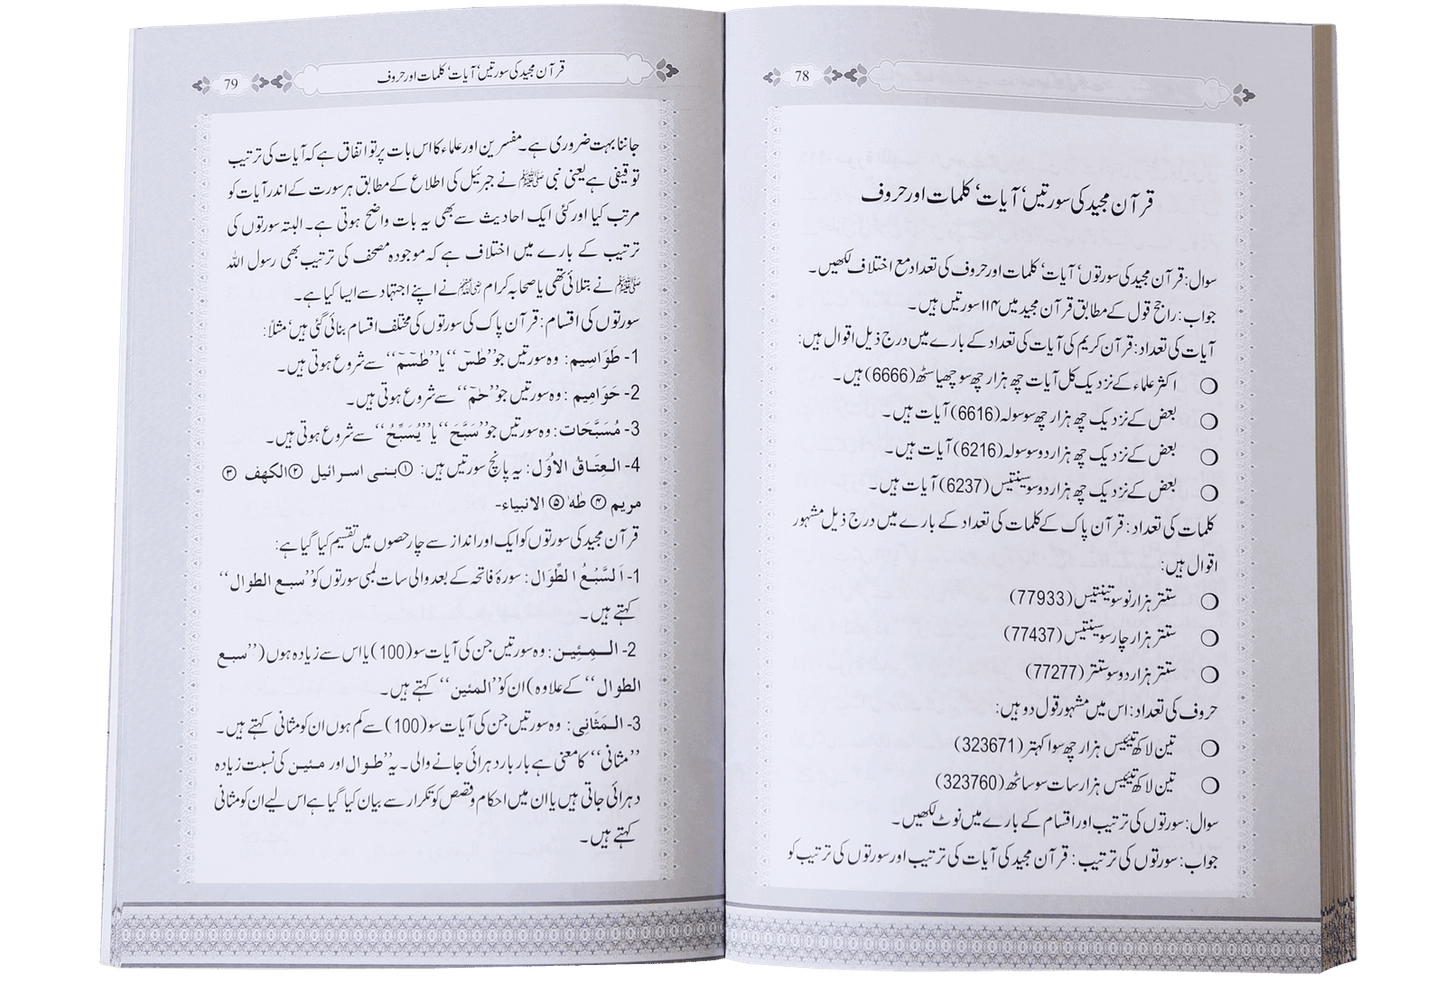 78
قرآن مجید کی سورتیں‘ آیات‘ کلمات اور حروف
سوال: قرآن مجید کی سورتوں‘ آیات‘ کلمات اور حروف کی تعداد مع اختلاف لکھیں۔
جواب: راجح قول کے مطابق قرآن مجید میں ۱۱۴ سورتیں ہیں۔
آیات کی تعداد: قرآن کریم کی آیات کی تعداد کے بارے میں درج ذیل اقوال ہیں:
○ اکثر علماء کے نزدیک کل آیات چھ ہزار چھ سو چھیاسٹھ (6666) ہیں۔
○ بعض کے نزدیک چھ ہزار چھ سو سولہ (6616) آیات ہیں۔
○ بعض کے نزدیک چھ ہزار دو سو سولہ (6216) آیات ہیں۔
○ بعض کے نزدیک چھ ہزار دو سو سینتیس (6237) آیات ہیں۔
کلمات کی تعداد: قرآن پاک کے کلمات کی تعداد کے بارے میں درج ذیل مشہور
اقوال ہیں:
○ ستتر ہزار نو سو تینتیس (77933)
○ ستتر ہزار چار سو سینتیس (77437)
○ ستتر ہزار دو سو ستتر (77277)
حروف کی تعداد: اس میں مشہور قول دو ہیں:
○ تین لاکھ تیئیس ہزار چھ سو اکہتر (323671)
○ تین لاکھ تیئیس ہزار سات سو ساٹھ (323760)
سوال: سورتوں کی ترتیب اور اقسام کے بارے میں نوٹ لکھیں۔
جواب: سورتوں کی ترتیب: قرآن مجید کی آیات کی ترتیب اور سورتوں کی ترتیب کو
قرآن مجید کی سورتیں‘ آیات‘ کلمات اور حروف
79
جاننا بہت ضروری ہے۔ مفسرین اور علماء کا اس بات پر تو اتفاق ہے کہ آیات کی ترتیب
توقیفی ہے یعنی نبی ﷺ نے جبرئیل کی اطلاع کے مطابق ہر سورت کے اندر آیات کو
مرتب کیا اور کئی ایک احادیث سے بھی یہ بات واضح ہوتی ہے۔ البتہ سورتوں کی
ترتیب کے بارے میں اختلاف ہے کہ موجودہ مصحف کی ترتیب بھی رسول اللہ
ﷺ نے بتلائی تھی یا صحابہ کرام نے اپنے اجتہاد سے ایسا کیا ہے۔
سورتوں کی اقسام: قرآن پاک کی سورتوں کی مختلف اقسام بنائی گئی ہیں‘ مثلاً:
1- طَوَاسِیم: وہ سورتیں جو ’’طٰسٓ‘‘ یا ’’طٰسٓمٓ‘‘ سے شروع ہوتی ہیں۔
2- حَوَامِیم: وہ سورتیں جو ’’حٰمٓ‘‘ سے شروع ہوتی ہیں۔
3- مُسَبِّحَات: وہ سورتیں جو ’’سَبَّحَ‘‘ یا ’’یُسَبِّحُ‘‘ سے شروع ہوتی ہیں۔
4- العِتَاقُ الاُوَل: یہ پانچ سورتیں ہیں: ①بنی اسرائیل ②الکھف ③
مریم ④ طٰہٰ ⑤ الانبیاء-
قرآن مجید کی سورتوں کو ایک اور انداز سے چار حصوں میں تقسیم کیا گیا ہے:
1- اَلسَّبْعُ الطِّوَال: سورۂ فاتحہ کے بعد والی سات لمبی سورتوں کو ’’سبع الطوال‘‘
کہتے ہیں۔
2- المِئِین: وہ سورتیں جن کی آیات سو (100) یا اس سے زیادہ ہوں (’’سبع
الطوال‘‘ کے علاوہ) ان کو ’’المئین‘‘ کہتے ہیں۔
3- المَثَانِی: وہ سورتیں جن کی آیات سو (100) سے کم ہوں ان کو مثانی کہتے ہیں۔
’’مثانی‘‘ کا معنی ہے بار بار دہرائی جانے والی۔ یہ طوال اور مئین کی نسبت زیادہ
دہرائی جاتی ہیں یا ان میں احکام و قصص کو تکرار سے بیان کیا گیا ہے اس لیے ان کو مثانی
کہتے ہیں۔